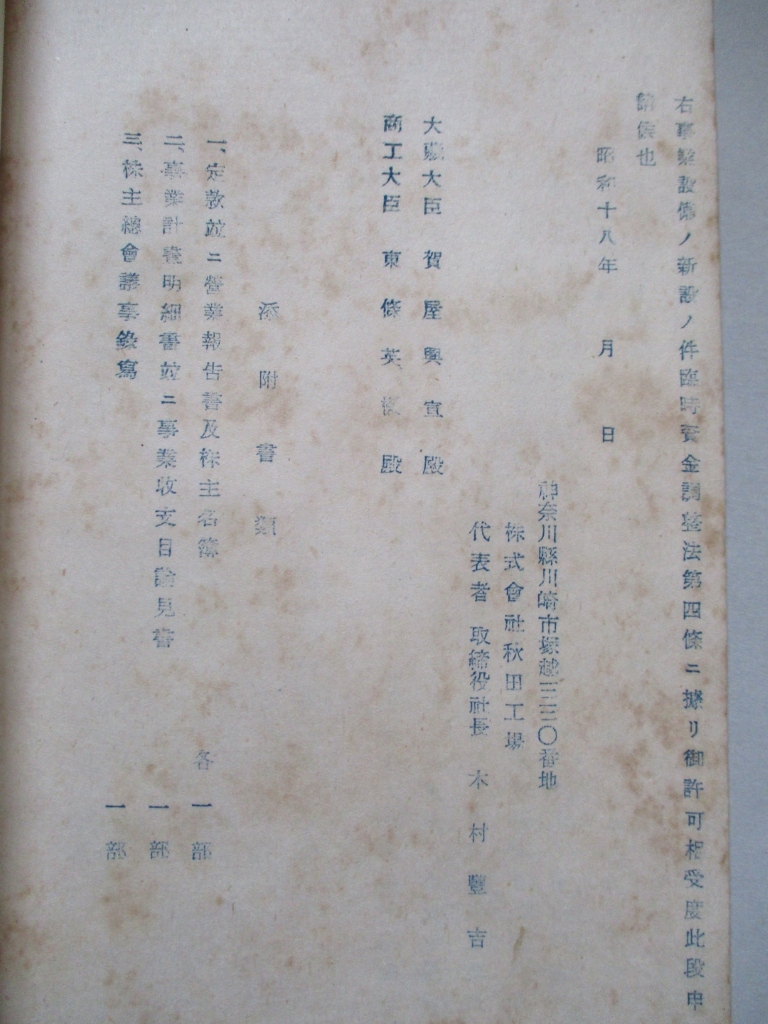 右事業設備ノ新設ノ件臨時資金調整法第四條ニ據リ御許可相受度此段申
請候也
昭和十八年 月 日
神奈川縣川崎市塚越三三〇番地
株式會社秋田工場
代表者 取締役社長 木村豐吉
大藏大臣 賀屋興宣殿
商工大臣 東條英機殿
添附書類
一、定款竝ニ營業報告書及株主名簿 各一部
二、事業計畫明細書竝ニ事業收支目論見書 一部
三、株主總會議事錄寫 一部